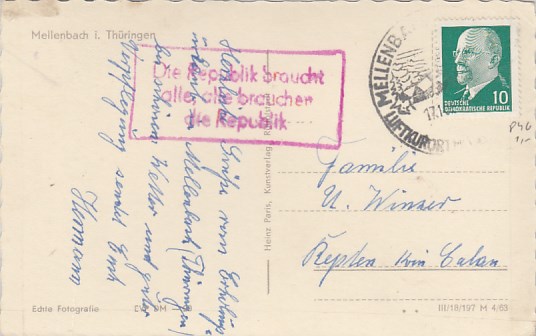 Mellenbach i. Thüringen
Die Republik braucht
alle, alle brauchen
die Republik
Herzliche Grüße vom Erholungs-
in Mellenbach (Thüringen)
bei schönem Wetter und guter
Verpflegung sendet Euch
Hermann
Echte Fotografie
Heinz Paris, Kunstverlag
MELLENBA
LUFTKURORT
17.
DEUTSCHE
DEMOKRATISCHE REPUBLIK
10
Familie
U. Winzer
Kepten
Calau
III/18/197 M 4/63